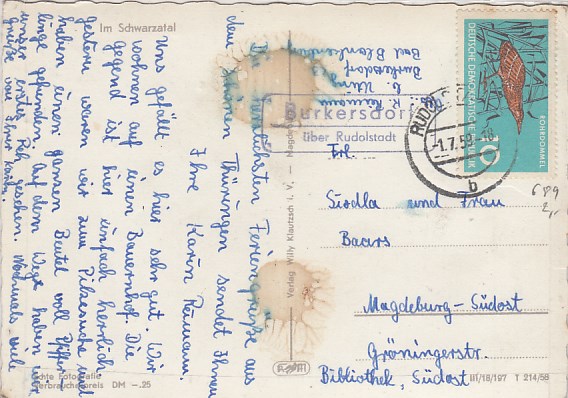 Im Schwarzatal
Die herzlichsten Feriengrüße aus
dem schönen Thüringen sendet Ihnen
Ihre Karin Reimann.
Uns gefällt es hier sehr gut. Wir
wohnen auf einem Bauernhof. Die
Gegend ist hier einfach herrlich.
Gestern waren wir zum Pilzesuche und
haben einen ganzen Beutel voll Pfiffer-
linge gefunden. Auf dem Wege haben wir
unser erstes Reh gesehen. Nochmals viele
Grüße von Ihrer Karin.
Echte Fotografie
Verbraucherpreis DM –.25
Verlag Willy Klautzsch i. V., – Magdeburg
R. Reimann
Burkersdorf
Bad Blankenburg
Burkersdorf
über Rudolstadt
RUDOLSTADT
-1.7.59
b
DEUTSCHE DEMOKRATISCHE REPUBLIK
ROHRDOMMEL
10
689
2,-
Frl.
und Frau
Baars
Magdeburg-Südost
Gröningerstr.
Bibliothek, Südost
III/18/197 T 214/58